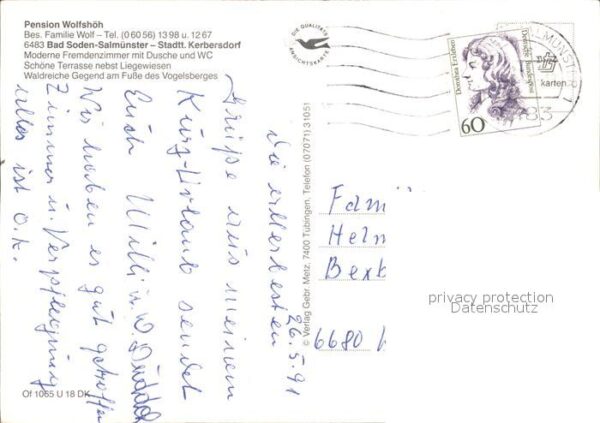 Pension Wolfshöh
Bes. Familie Wolf – Tel. (0 60 56) 13 98 u. 12 67
6483 Bad Soden-Salmünster – Stadtt. Kerbersdorf
Moderne Fremdenzimmer mit Dusche und WC
Schöne Terrasse nebst Liegewiesen
Waldreiche Gegend am Fuße des Vogelsberges
DIE QUALITÄTS
ANSICHTSKARTE
Dorothea Erxleben
Deutsche Bundespost
60
karten
26.5.91
Die allerbesten
Grüße aus meinem
Kurz-Urlaub sendet
Euch Willi u.
Wir haben es gut getroffen
Zimmer u. Verpflegung
alles ist o.k.
© Verlag Gebr. Metz, 7400 Tübingen, Telefon (07071) 31051
Fam
Helm
Bexb
6680
privacy protection
Datenschutz
Of 1065 U 18 DK